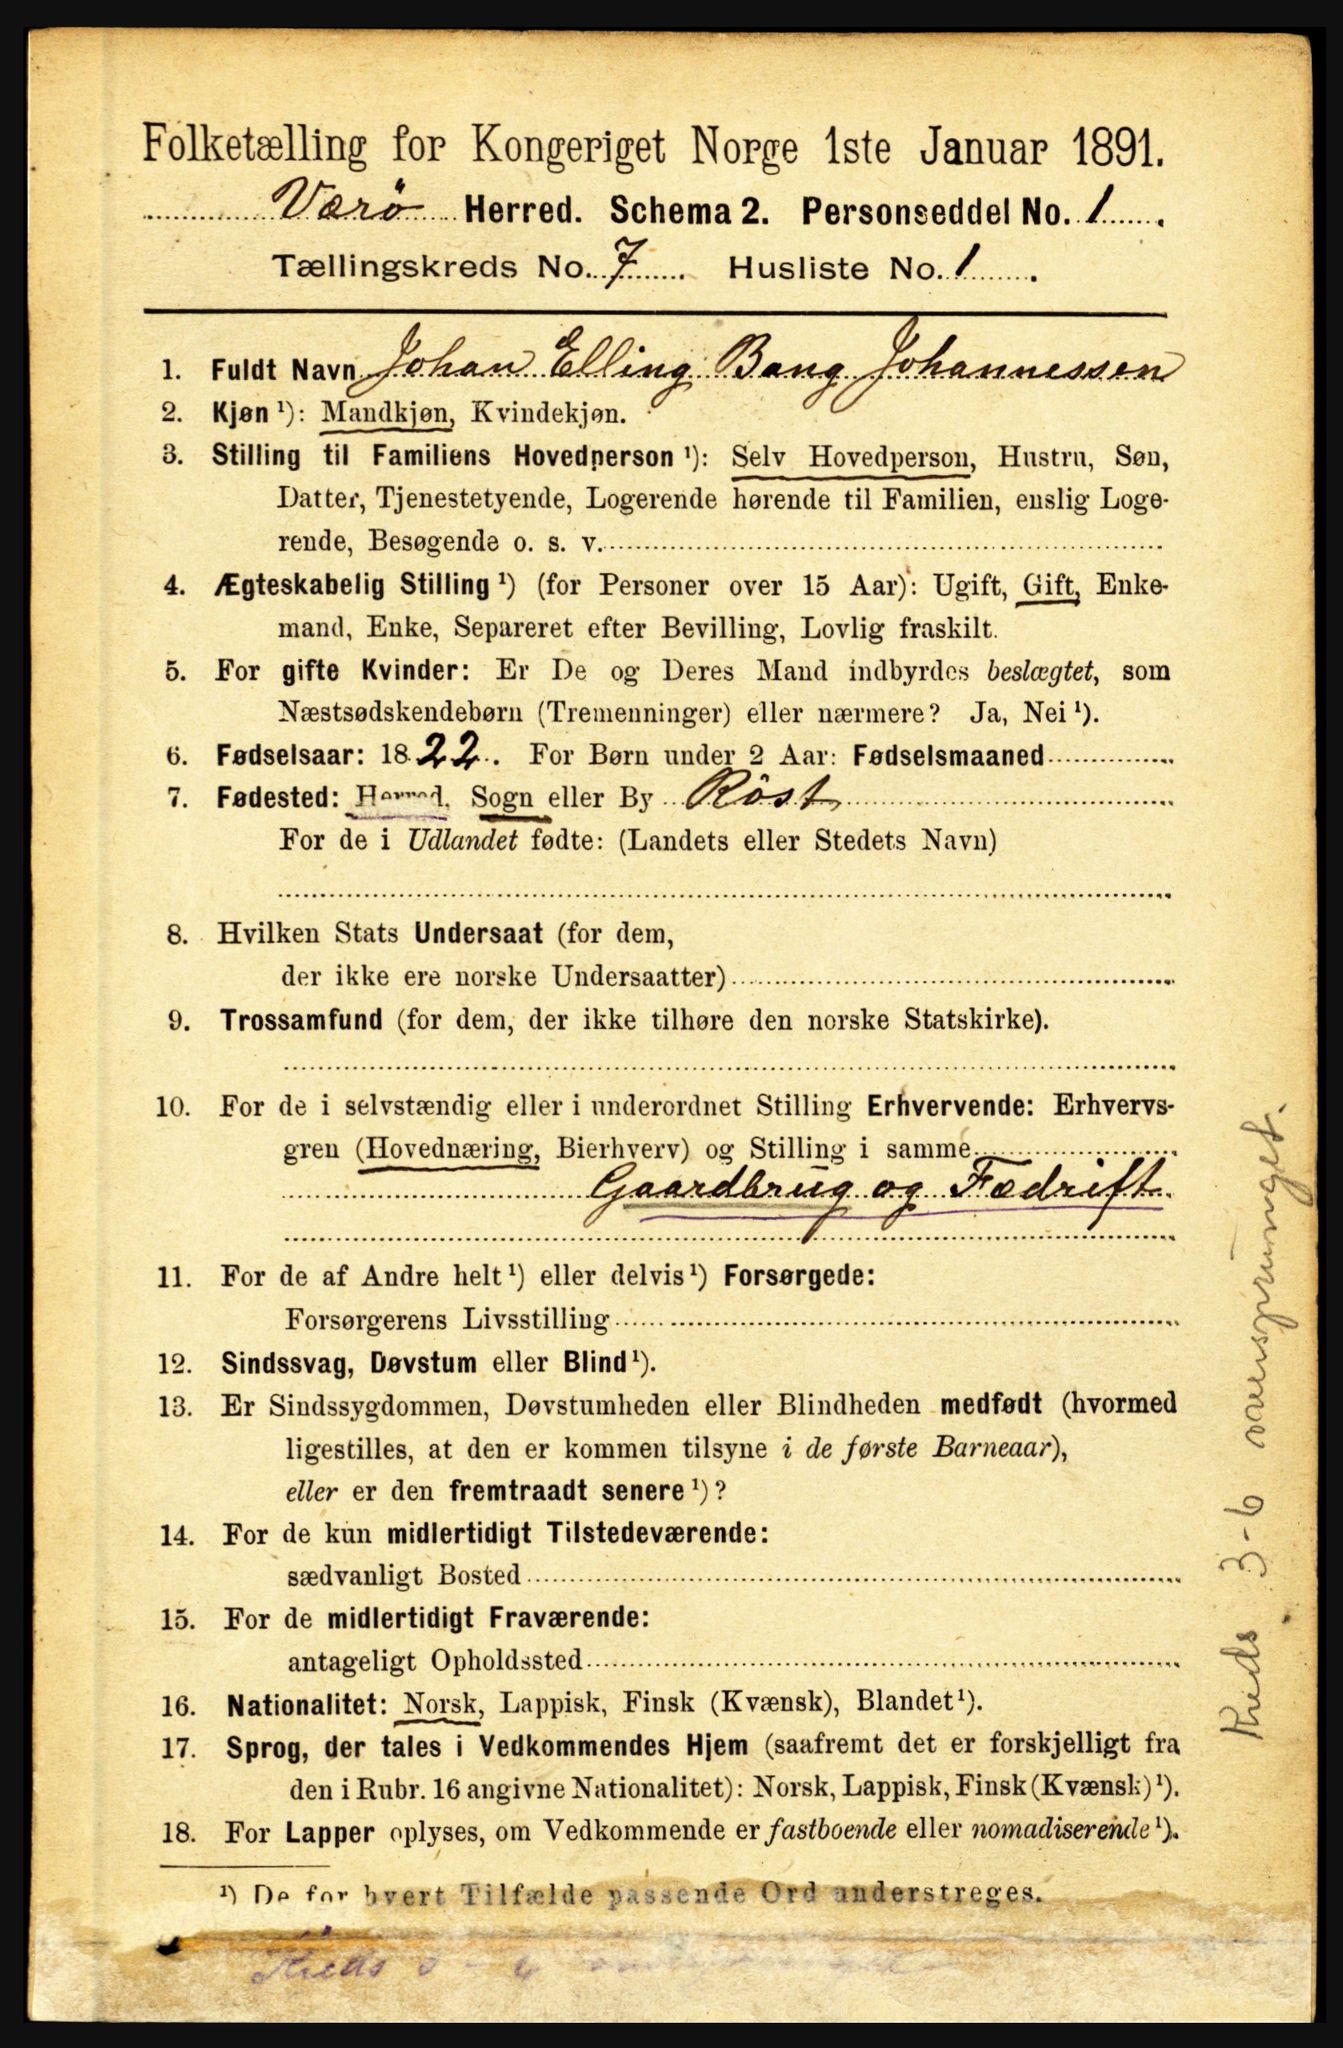 Folketælling for Kongeriget Norge 1ste Januar 1891.
Værö Herred. Schema 2. Personseddel No. 1.
Tællingskreds No. 7. Husliste No. 1.
1. Fuldt Navn Johan Elling Bang Johannessen
2. Kjøn ¹): Mandkjøn, Kvindekjøn.
3. Stilling til Familiens Hovedperson ¹): Selv Hovedperson, Hustru, Søn,
Datter, Tjenestetyende, Logerende hørende til Familien, enslig Loge-
rende, Besøgende o. s. v.
4. Ægteskabelig Stilling ¹) (for Personer over 15 Aar): Ugift, Gift, Enke-
mand, Enke, Separeret efter Bevilling, Lovlig fraskilt.
5. For gifte Kvinder: Er De og Deres Mand indbyrdes beslægtet, som
Næstsødskendebørn (Tremenninger) eller nærmere? Ja, Nei ¹).
6. Fødselsaar: 1822. For Børn under 2 Aar: Fødselsmaaned
7. Fødested: Herred, Sogn eller By Röst
For de i Udlandet fødte: (Landets eller Stedets Navn)
8. Hvilken Stats Undersaat (for dem,
der ikke ere norske Undersaatter)
9. Trossamfund (for dem, der ikke tilhøre den norske Statskirke).
10. For de i selvstændig eller i underordnet Stilling Erhvervende: Erhvervs-
gren (Hovednæring, Bierhverv) og Stilling i samme
Gaardbrug og Fædrift
11. For de af Andre helt ¹) eller delvis ¹) Forsørgede:
Forsørgerens Livsstilling
12. Sindssvag, Døvstum eller Blind ¹).
13. Er Sindssygdommen, Døvstumheden eller Blindheden medfødt (hvormed
ligestilles, at den er kommen tilsyne i de første Barneaar),
eller er den fremtraadt senere ¹)?
14. For de kun midlertidigt Tilstedeværende:
sædvanligt Bosted
15. For de midlertidigt Fraværende:
antageligt Opholdssted
16. Nationalitet: Norsk, Lappisk, Finsk (Kvænsk), Blandet ¹).
17. Sprog, der tales i Vedkommendes Hjem (saafremt det er forskjelligt fra
den i Rubr. 16 angivne Nationalitet): Norsk, Lappisk, Finsk (Kvænsk) ¹).
18. For Lapper oplyses, om Vedkommende er fastboende eller nomadiserende ¹).
¹) De for hvert Tilfælde passende Ord understreges.
Kreds 3-6
Kreds 3-6 oversprunget.